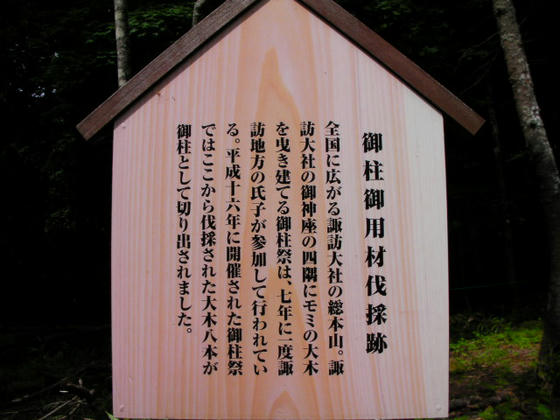 御柱御用材伐採跡
全国に広がる諏訪大社の総本山。諏
訪大社の御神座の四隅にモミの大木
を曳き建てる御柱祭は、七年に一度諏
訪地方の氏子が参加して行われてい
る。平成十六年に開催された御柱祭
ではここから伐採された大木八本が
御柱として切り出されました。